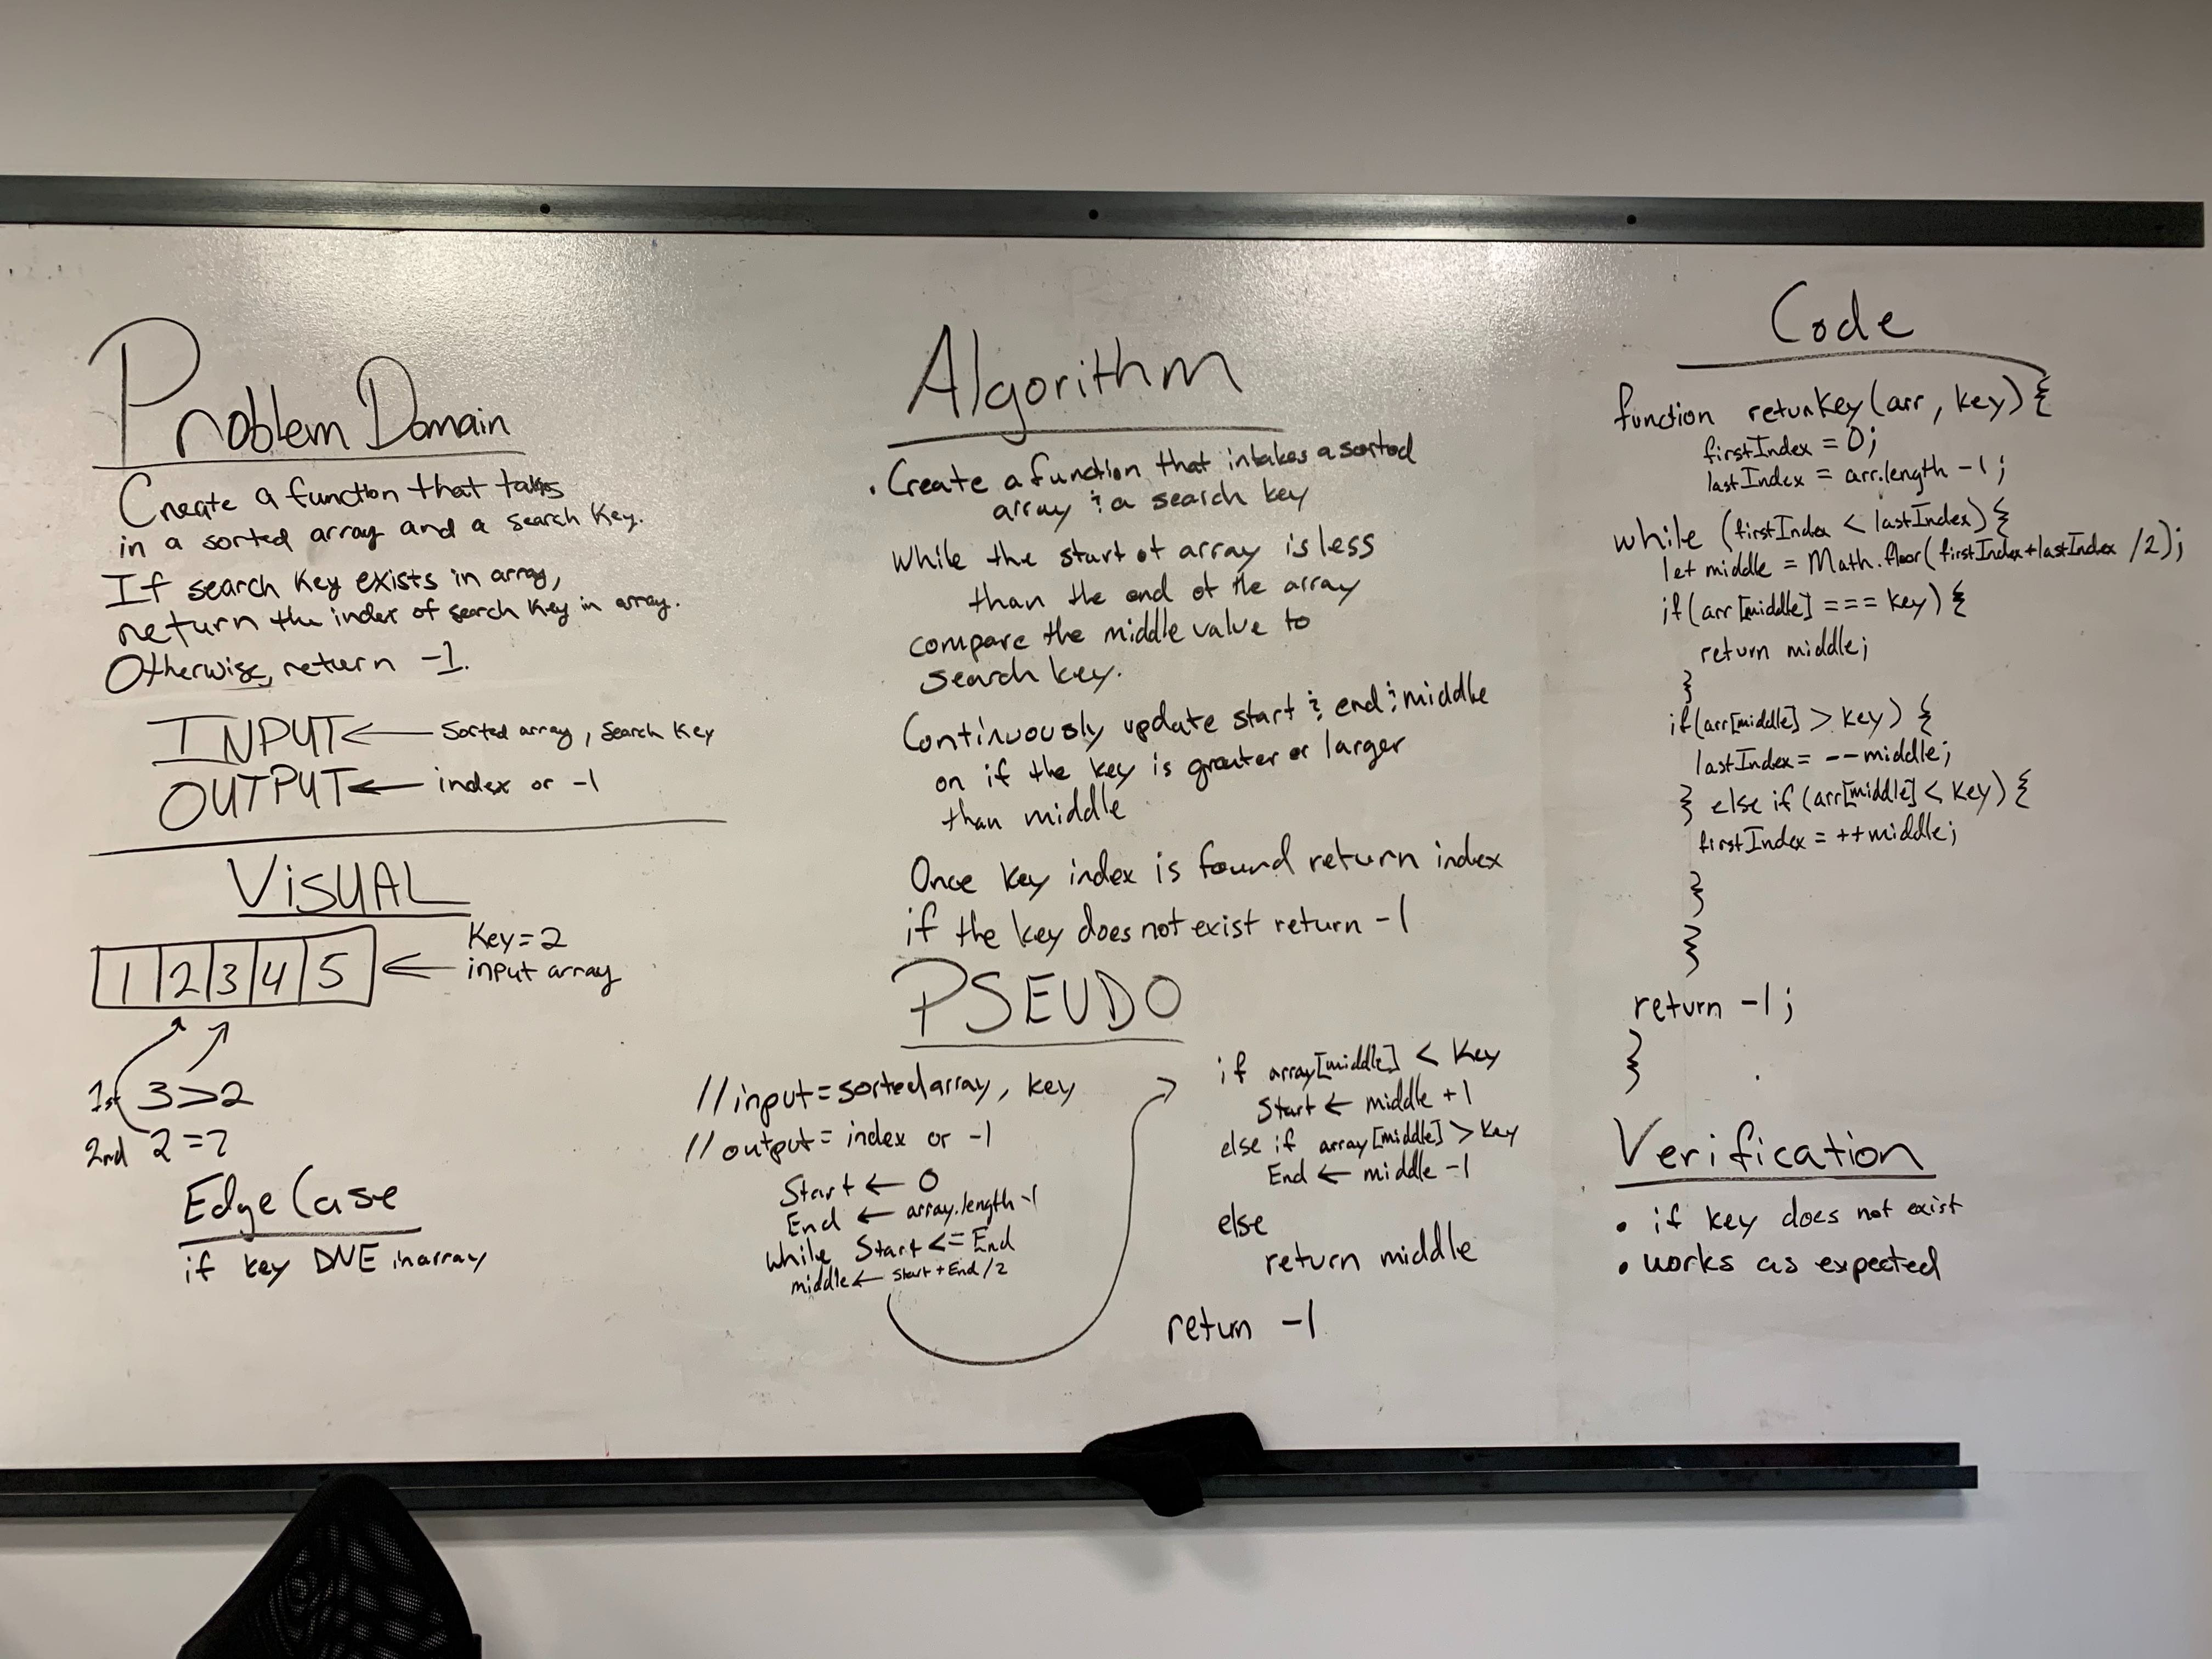 Problem Domain
Create a function that takes
in a sorted array and a search key.
If search key exists in array,
return the index of search key in array.
Otherwise, return -1.
INPUT ← sorted array, search key
OUTPUT ← index or -1
VISUAL
Key=2
1 2 3 4 5 ← input array
1st 3>2
2nd 2=2
Edge Case
if key DNE in array
Algorithm
. Create a function that intakes a sorted
array & a search key
While the start of array is less
than the end of the array
compare the middle value to
search key.
Continuously update start & end & middle
on if the key is greater or larger
than middle
Once key index is found return index
if the key does not exist return -1
PSEUDO
//input = sorted array, key
//output = index or -1
Start ← 0
End ← array.length -1
while Start <= End
middle ← Start + End /2
if array[middle] < key
Start ← middle +1
else if array[middle] > key
End ← middle -1
else
return middle
return -1
Code
function retunKey(arr, key) {
firstIndex = 0;
lastIndex = arr.length -1;
while (firstIndex < lastIndex) {
let middle = Math.floor(firstIndex+lastIndex /2);
if(arr[middle] === key) {
return middle;
}
if(arr[middle] > key) {
lastIndex = --middle;
} else if (arr[middle] < key) {
firstIndex = ++middle;
}
}
return -1;
}
Verification
• if key does not exist
• works as expected